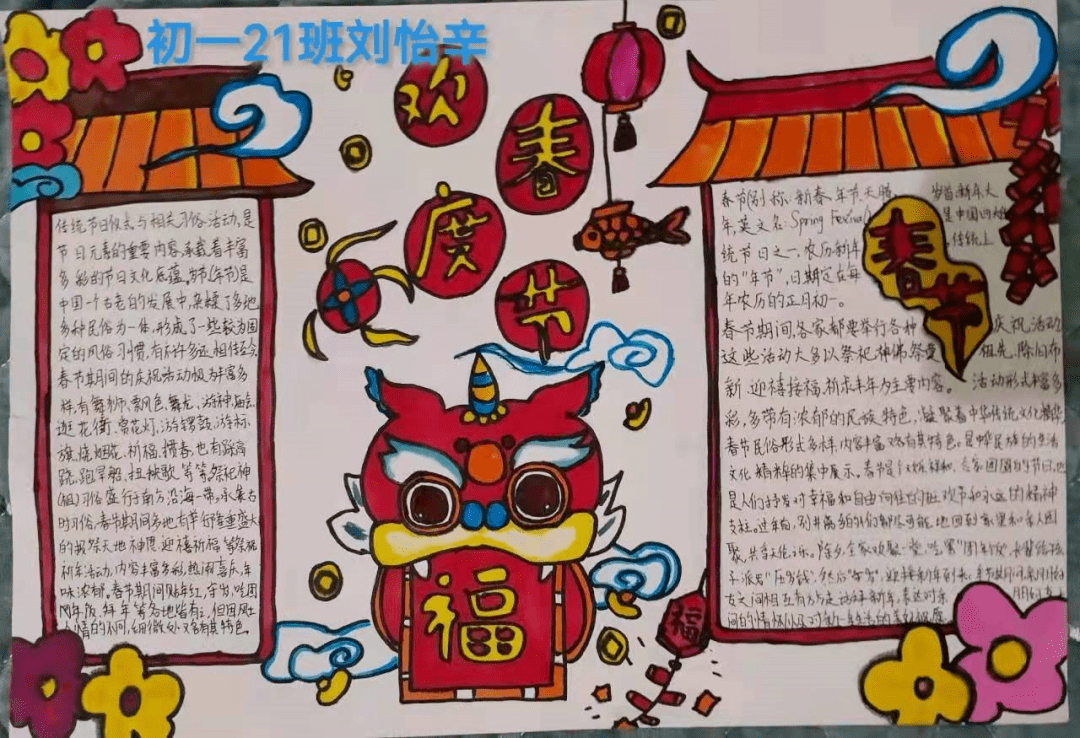 初一21班刘怡辛
欢
春
度
节
传统节日仪式与相关习俗活动,是
节日元素的重要内容,承载着丰富
多彩的节日文化底蕴。春节(年节)是
中国一个古老的
多种民俗为一体,形成了一些较为固
定的风俗习惯,有许多还相传至今。
春节期间的庆祝活动极为丰富多
样,有舞狮、飘色、舞龙、游神、庙会、
逛花街、赏花灯、游锣鼓、游标
旗、烧烟花、祈福、掼春,也有踩高
跷、跑旱船、扭秧歌等等。祭祀神
(祖)习俗盛行于南方沿海一带。承袭古
时习俗,春节期间多地有举行隆重盛大
的 祭天地神 迎禧祈福等
新年活动,内容丰富多彩,热闹喜庆,年
味浓郁。春节期间贴年红、守岁、吃团
年饭、拜年等各地皆有;但因风土
人情的不同,细微处又各有其特色。
福
福
春节
春节(别称:新春、年节、天腊、 岁首、新年、大
年,英文名:Spring 是中国四大
统节日之一,农历新年 传统上
的“年节”,日期定在每
年农历的正月初一。
春节期间,各家都要举行各种 庆祝活动
这些活动大多以祭祀神佛、祭奠 祖先、除旧布
新、迎禧接福、祈求丰年为主要内容。 活动形式丰富多
彩,多带有浓郁的民族特色,凝聚着中华传统文化精华
春节民俗形式多样、内容丰富, 有其特色。是 民族的生活
文化精粹的集中展示。春节是个 团圆的节日,也
是人们抒发对幸福和自由向往的狂欢节和永远的精神
支柱。过年前,
聚,共享天伦之乐。除夕,全家欢聚一堂,吃罢“团年饭”,长辈给孩
子派发“压岁钱”,然后“守岁”,迎接新年到来。春节期间亲朋好
友之间相互 走访拜新年,表达对亲 朋好友
间的情怀以及对新一年生活的美好祝愿